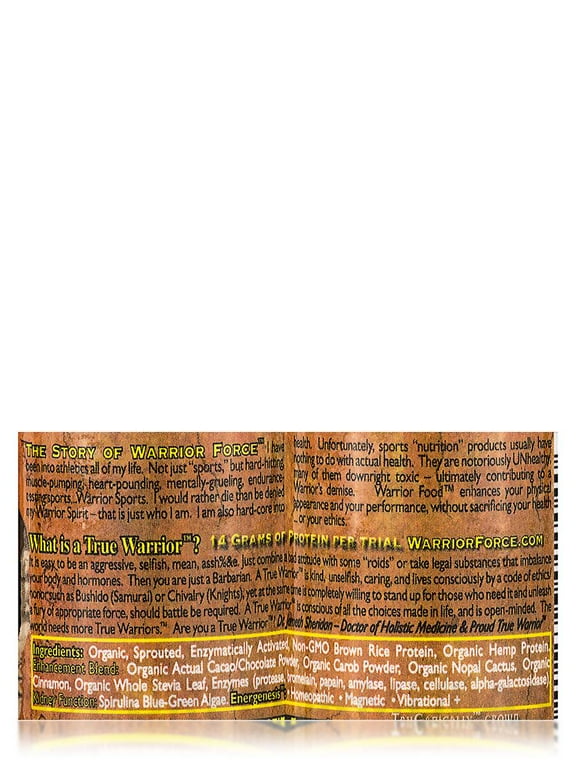 THE STORY OF WARRIOR FORCE™ I have
been into athletics all of my life. Not just "sports," but hard-hitting,
muscle-pumping, heart-pounding, mentally-grueling, endurance
testing sports...Warrior Sports. I would rather die than be denied
my Warrior Spirit – that is just who I am. I am also hard-core into
health. Unfortunately, sports "nutrition" products usually have
nothing to do with actual health. They are notoriously UNhealthy,
many of them downright toxic – ultimately contributing to a
Warrior's demise. Warrior Food™ enhances your physical
appearance and your performance, without sacrificing your health
... or your ethics.
What is a True Warrior™? 14 GRAMS OF PROTEIN PER TRIAL WARRIORFORCE.COM
It is easy to be an aggressive, selfish, mean, assh%&e. Just combine a bad attitude with some "roids" or take legal substances that imbalance
your body and hormones. Then you are just a Barbarian. A True Warrior™ is kind, unselfish, caring, and lives consciously by a code of ethics
honor such as Bushido (Samurai) or Chivalry (Knights), yet at the same time is completely willing to stand up for those who need it and unleash
a fury of appropriate force, should battle be required. A True Warrior™ is conscious of all the choices made in life, and is open-minded. The
world needs more True Warriors.™ Are you a True Warrior™? Dr. Jameth Sheridan – Doctor of Holistic Medicine & Proud True Warrior™
Ingredients: Organic, Sprouted, Enzymatically Activated, Non-GMO Brown Rice Protein, Organic Hemp Protein,
Enhancement Blend: Organic Actual Cacao/Chocolate Powder, Organic Carob Powder, Organic Nopal Cactus, Organic
Cinnamon, Organic Whole Stevia Leaf, Enzymes (protease, bromelain, papain, amylase, lipase, cellulase, alpha-galactosidase),
Kidney Function: Spirulina Blue-Green Algae. Energenesis™: Homeopathic • Magnetic • Vibrational +
GROWN